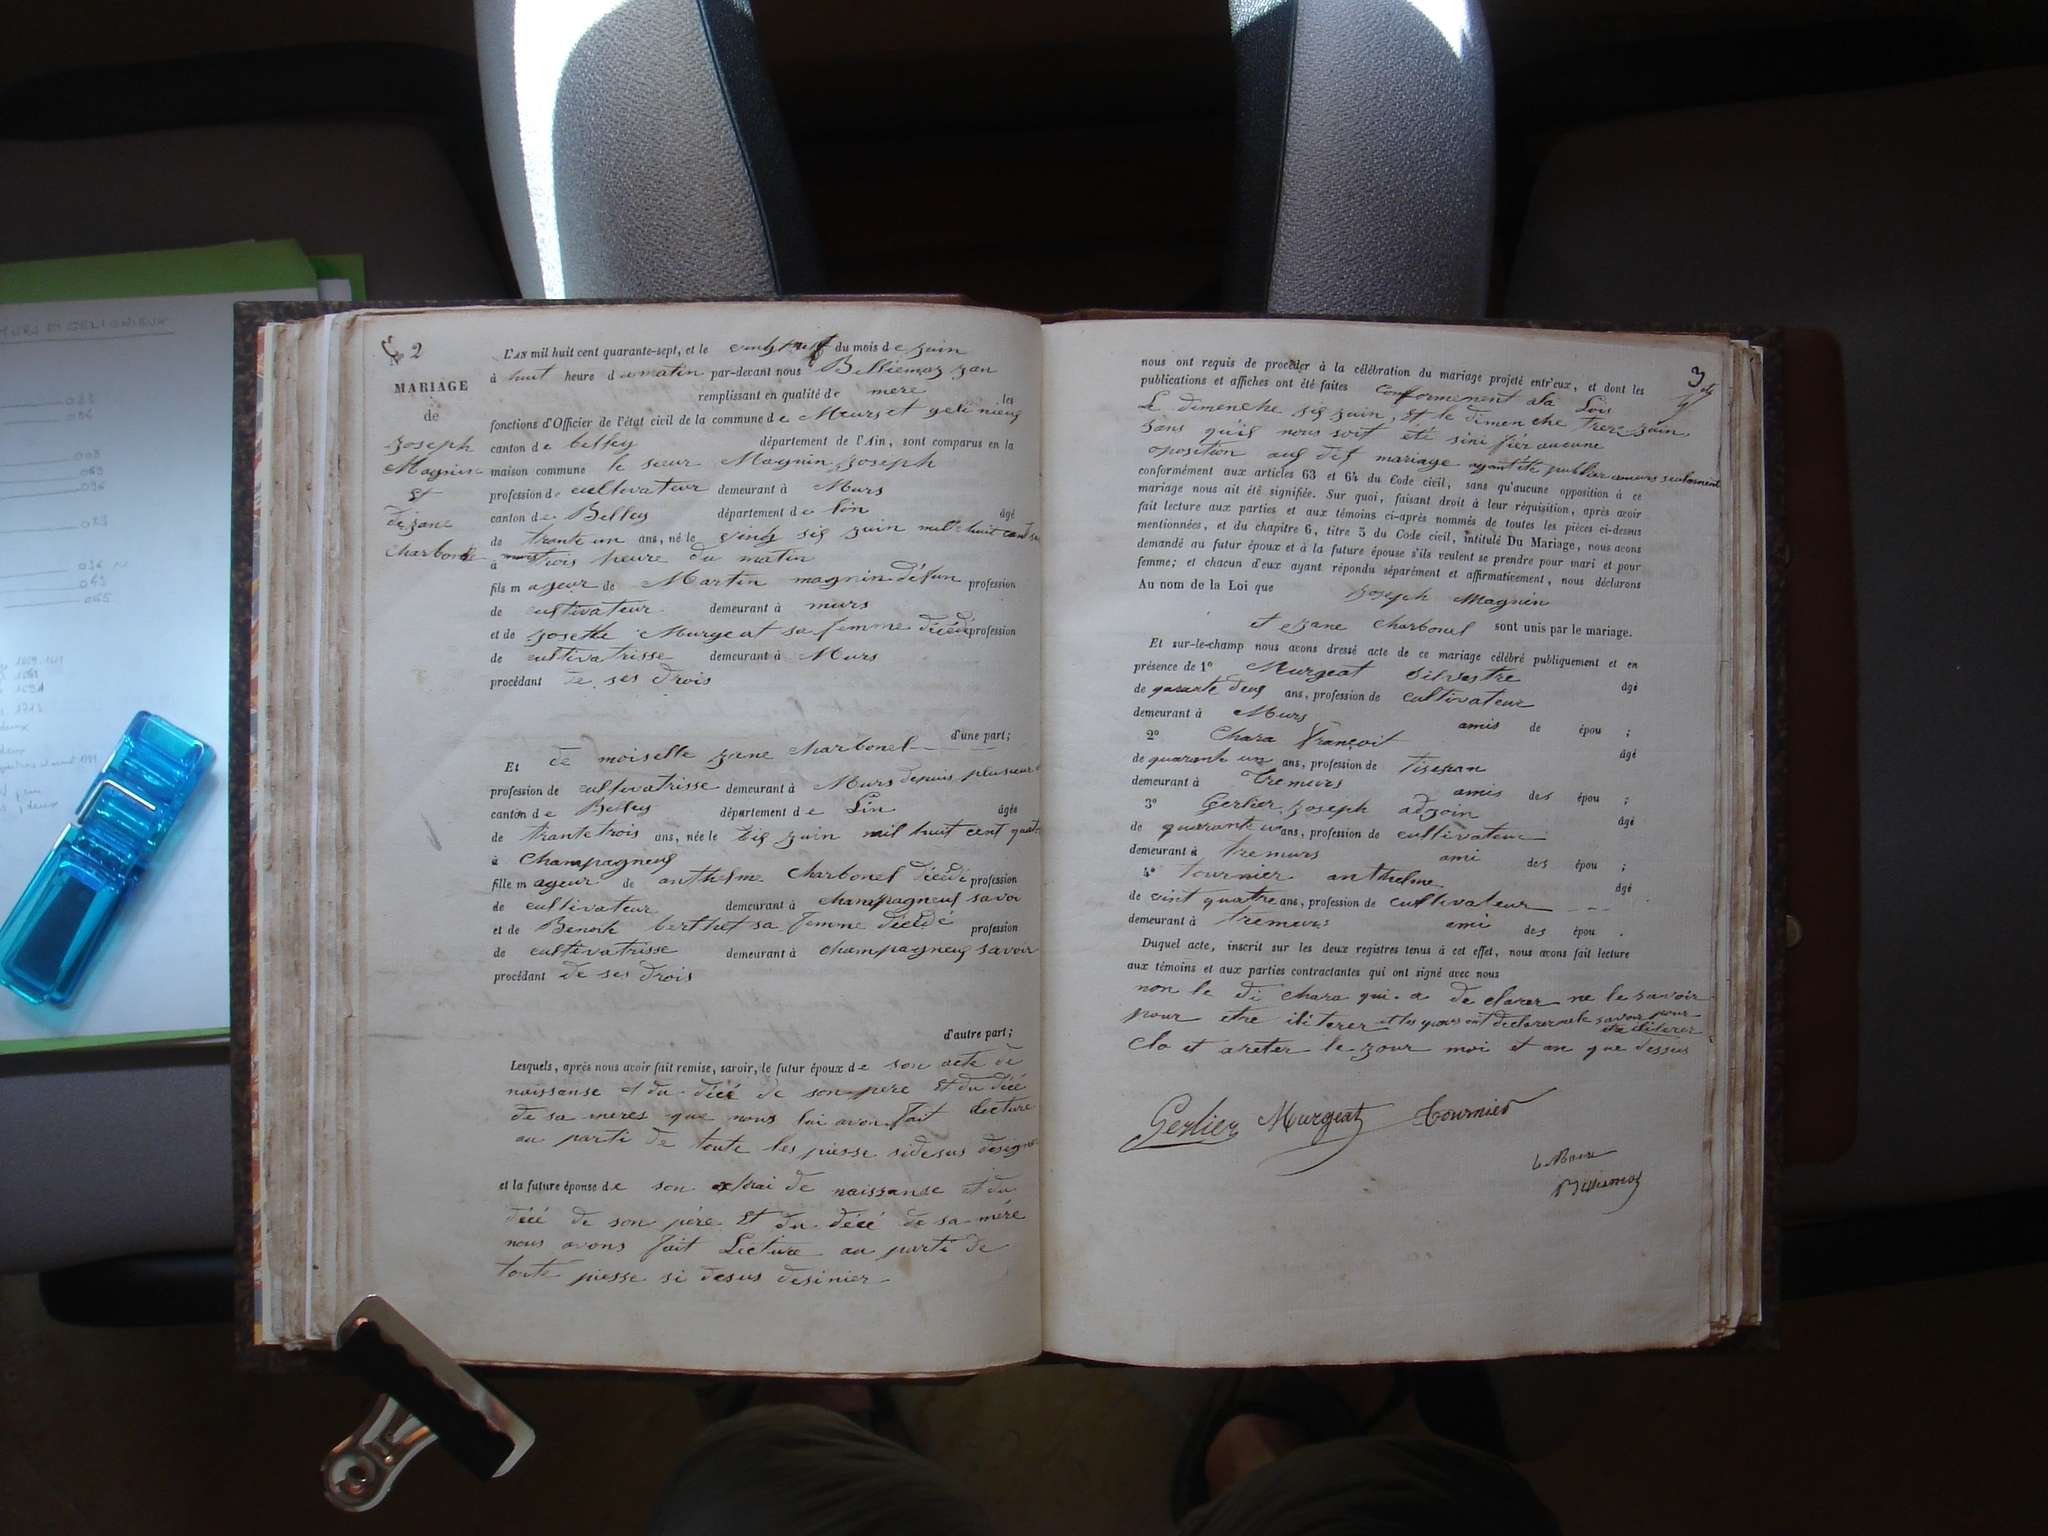 MURS ET GELIGNIEUX
N° 2
MARIAGE
de
Zoseph
Magnin
et
de zane
Charbonel
L'AN mil huit cent quarante-sept, et le vingt neuf du mois de zuin
à huit heure du matin par-devant nous Belliemaz zan
remplissant en qualité de mere les
fonctions d'Officier de l'état civil de la commune de Murs et gelinieux
canton de belley département de l'Ain, sont comparus en la
maison commune le sieur Magnin Zoseph
profession de cultivateur demeurant à Murs
canton de Belley département de lin âgé
de trante un ans, né le ving sis zuin mil huit cent
à trois heure du matin
fils mageur de Martin magnin défun profession
de cultivateur demeurant à murs
et de zosette Murgeat sa femme décédé profession
de cultivatrisse demeurant à Murs
procédant de ses drois
d'une part;
Et de moiselle zane Charbonel
profession de cultivatrisse demeurant à Murs depuis plusieur
canton de Belley département de Lin âgée
de trante trois ans, née le sis zuin mil huit cent
à Champagneux
fille mageur de anthelme Charbonel décédé profession
de cultivateur demeurant à champagneux savoi
et de Benoite berthet sa femme décédé profession
de cultivatrisse demeurant à champagneux savoir
procédant de ses drois
d'autre part;
Lesquels, après nous avoir fait remise, savoir, le futur époux de son acte de
naissanse et du décé de son pere et du décé
de sa meres que nous lui avon fait lecture
au parti de toute les piesse sidesus designer
et la future épouse de son extrai de naissanse et du
décé de son pére et du décé de sa mére
nous avons fait Lecture au parti de
toute piesse si desus desinier
3
nous ont requis de procéder à la célébration du mariage projeté entr'eux, et dont les
publications et affiches ont été faites conformement ala Lois
Le dimenche sis zuin, et le dimenche treze zuin
sans qu'il nous soit été sinifier aucune
oposition aux dit mariage ayant été publier amurs seulement
conformément aux articles 63 et 64 du Code civil, sans qu'aucune opposition à ce
mariage nous ait été signifiée. Sur quoi, faisant droit à leur réquisition, après avoir
fait lecture aux parties et aux témoins ci-après nommés de toutes les pièces ci-dessus
mentionnées, et du chapitre 6, titre 5 du Code civil, intitulé Du Mariage, nous avons
demandé au futur époux et à la future épouse s'ils veulent se prendre pour mari et pour
femme; et chacun d'eux ayant répondu séparément et affirmativement, nous déclarons
Au nom de la Loi que Zoseph Magnin
et zane Charbonel sont unis par le mariage.
Et sur-le-champ nous avons dressé acte de ce mariage célébré publiquement et en
présence de 1° Murgeat Silvestre âgé
de quarante deux ans, profession de cultivateur
demeurant à Murs amis de épou ;
2° Chara françois âgé
de quarante un ans, profession de tiseran
demeurant à tremurs amis des épou ;
3° Gerlier zoseph adzoin âgé
de quarante un ans, profession de cultivateur
demeurant à tremurs ami des épou ;
4° tournier anthelme âgé
de vint quatre ans, profession de cultivateur
demeurant à tremurs ami des épou .
Duquel acte, inscrit sur les deux registres tenus à cet effet, nous avons fait lecture
aux témoins et aux parties contractantes qui ont signé avec nous
non le di chara qui a declarer ne le savoir
pour etre iliterer et les epoux ont declarer ne le savoir pour
etre iliterer
Clo et areter le zour moi et an que dessus
Gerlier Murgeat Tournier
le Maire
Belliemaz